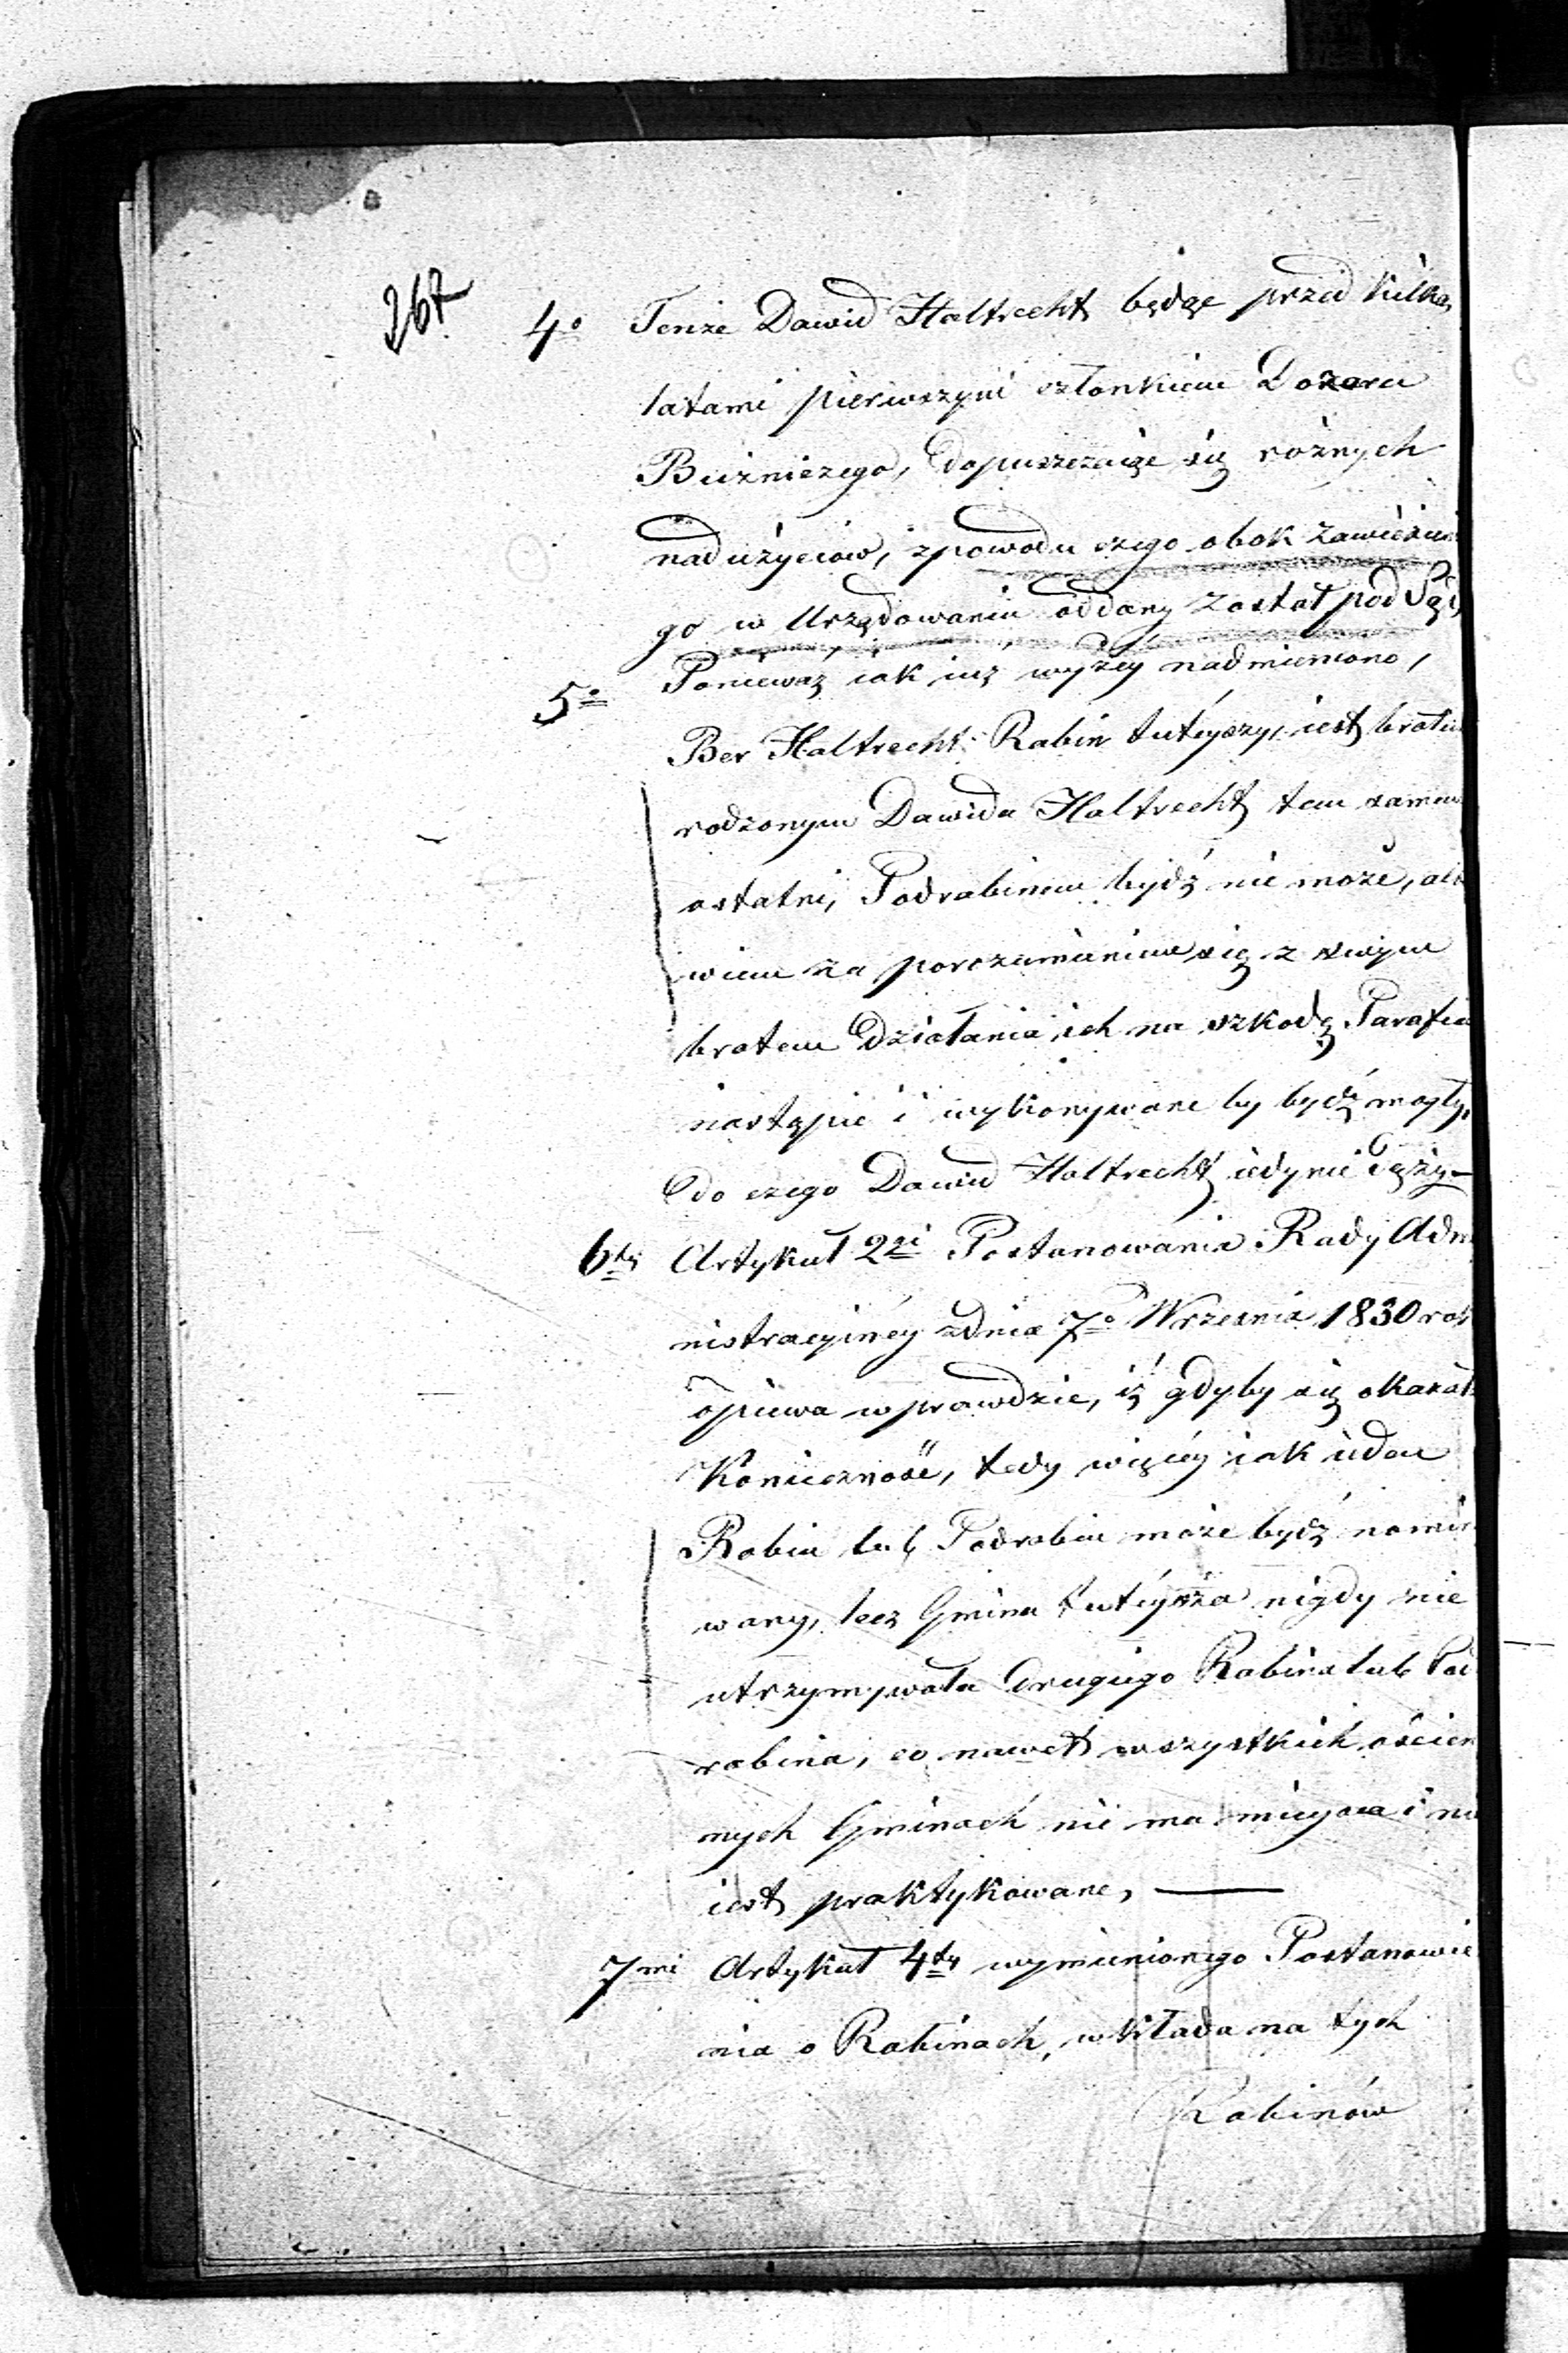 267
4o Tenże Dawid Haltrecht będąc przed kilka
latami pierwszym członkiem Dozoru
Bużniczego, dopuszczaiąc się rożnych
nadużyciow, zpowodu czego obok zawieszen
go w Urzędowaniu oddany został pod Sąd,
5o Ponieważ iak iuż wyżey nadmieniono,
Ber Haltrecht Rabin tuteyszy, iest bratem
rodzonym Dawida Haltrecht tem samem
ostatni, Podrabinem bydź nie może, albo
wiem za porozumieniem się z swym
bratem działania ich na szkodę Parafia
nastąpić i wykonywane by bydź mogły,
do czego Dawid Haltrecht iedynie dąży—
6ty Artykuł 2gi Postanowania Rady Admi
nistracyiney zdnia 7o Września 1830 rok
opiewa wprawdzie, iż gdyby się okazała
Konieczność, tedy więcey iak ieden
Rabin lub Podrabin może bydź nomin
wany, lecz Gmina tuteysza nigdy nie
utrzymywała drugiego Rabina lub Pod
rabina, co nawet wszystkich oscien
nych Gminach nie ma mieysca i nie
iest praktykowane, —
7mi Artykuł 4ty wymienionego Postanowie
nia o Rabinach, wkłada na tych
Rabinów